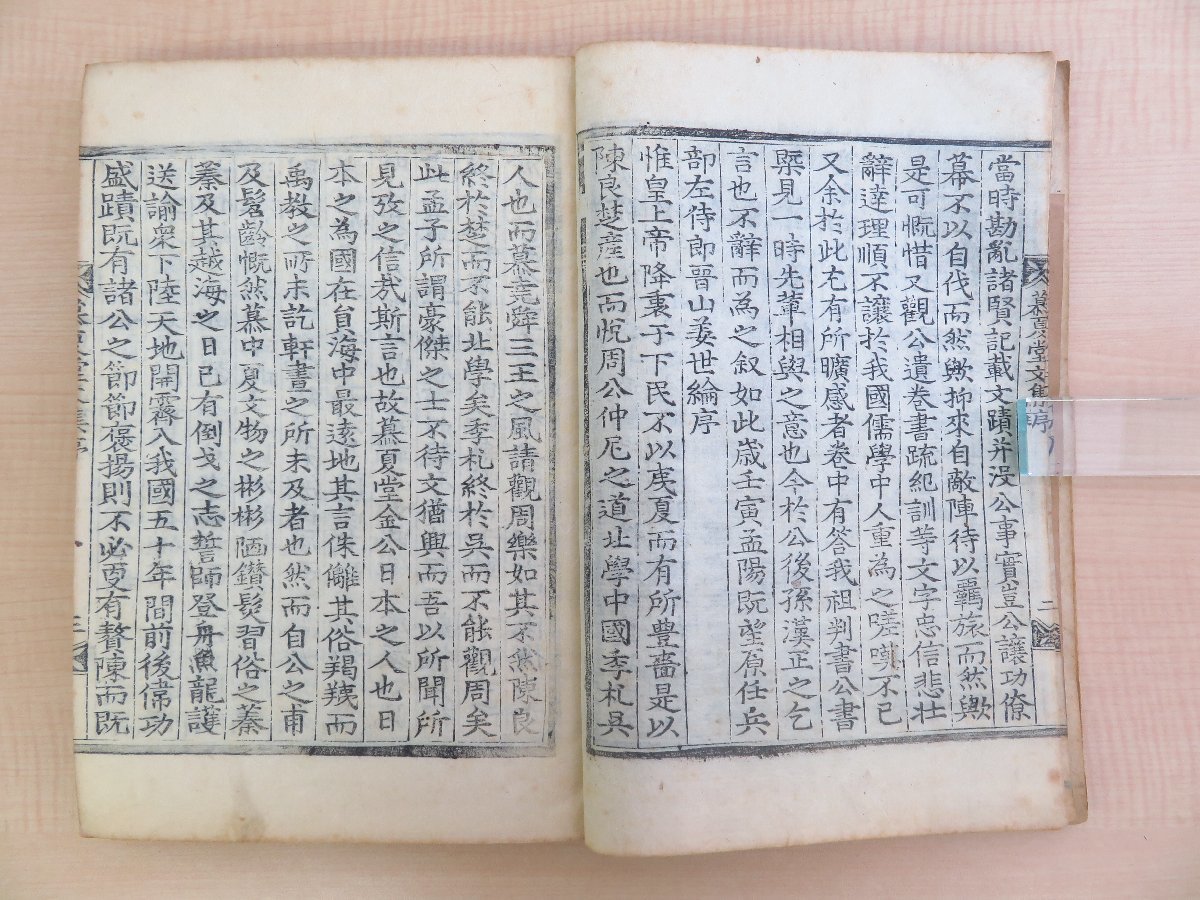 當時勘亂諸賢記載文蹟并沒公事實豈公讓功僚
幕不以自伐而然歟抑來自敵陣待以羈旅而然歟
是可慨惜又觀公遺卷書疏紀訓等文字忠信悲壯
辭達理順不讓於我國儒學中人重為之嗟嘆不已
又余於此尤有所曠感者卷中有答我祖判書公書
槩見一時先輩相與之意也今於公後孫漢正之乞
言也不辭而為之叙如此歲壬寅孟陽既望原任兵
部左侍郎晋山姜世綸序
惟皇上帝降衷于下民不以夷夏而有所豊嗇是以
陳良楚產也而悅周公仲尼之道北學中國季札吳
慕夏堂文集序
二
人也而慕堯舜三王之風請觀周樂如其不然陳良
終於楚而不能北學矣季札終於吳而不能觀周矣
此孟子所謂豪傑之士不待文猶興而吾以所聞所
見攷之信哉斯言也故慕夏堂金公日本之人也日
本之為國在負海中最遠地其言侏儺其俗羯羠而
禹教之所未訖軒晝之所未及者也然而自公之甫
及髫齡慨然慕中夏文物之彬彬陋鑽髮習俗之蓁
蓁及其越海之日已有倒戈之志誓師登舟魚龍護
送諭衆下陸天地開霽入我國五十年間前後常功
盛蹟既有諸公之節節褒揚則不必更有贅陳而既
三